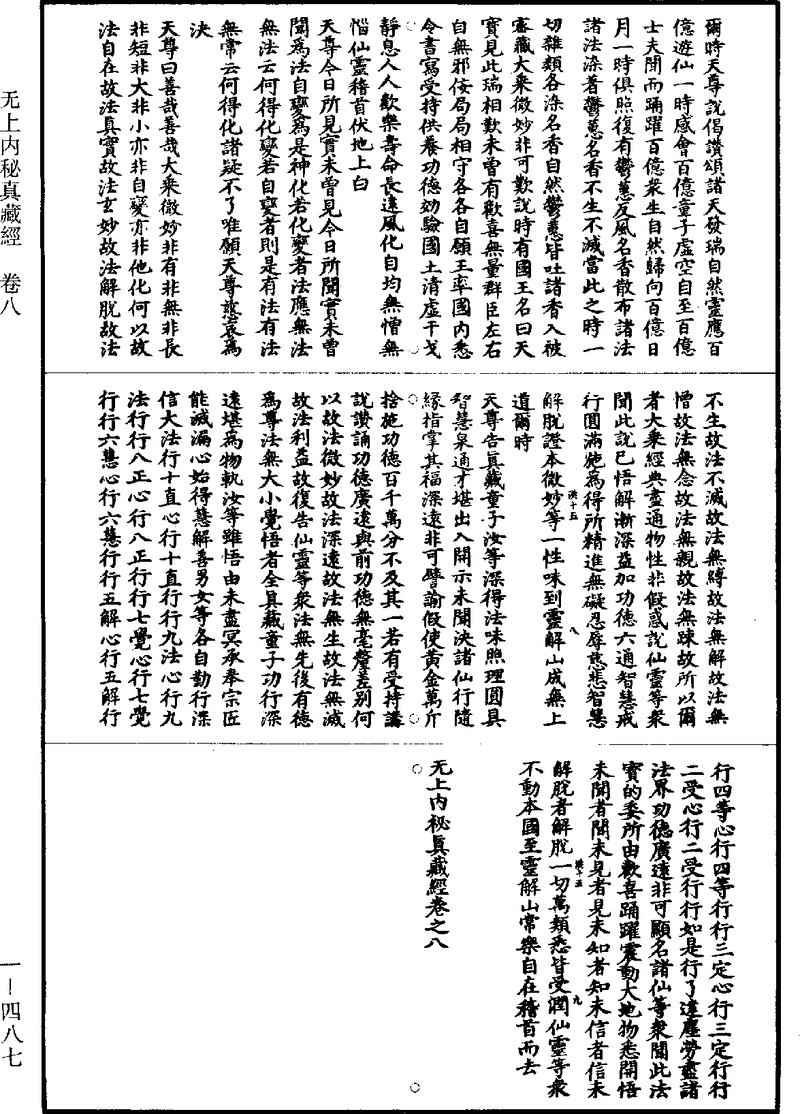 爾時天尊說偈讚頌諸天發瑞自然靈應百
億遊仙一時感會百億童子虛空自至百億
士夫聞而踊躍百億衆生自然歸向百億日
月一時俱照復有鬱蒽返風名香散布諸法
諸法染著鬱蒽名香不生不滅當此之時一
切雜類各染名香自然鬱蒽皆吐諸香入被
密藏大乘微妙非可歎說時有國王名曰天
寶見此瑞相歎未曾有歡喜無量群臣左右
自無邪佞局局相守各各自願王率國內悉
令書寫受持供養功德効驗國土清虛干戈
靜息人人歡樂壽命長遠風化自均無憎無
惱仙靈稽首伏地上白
天尊今日所見實未曾見今日所聞實未曾
聞為法自變為是神化若化變者法應無法
無法云何得化變若自變者則是有法有法
無常云何得化諸疑不了唯願天尊慈哀為
決
天尊曰善哉善哉大乘微妙非有非無非長
非短非大非小亦非自變亦非他化何以故
法自在故法真實故法玄妙故法解脫故法
不生故法不滅故法無縛故法無解故法無
憎故法無念故法無親故法無踈故所以爾
者大乘經典盡通物性非假惑說仙靈等衆
聞此說已悟解漸深益加功德六通智慧戒
行圓滿施為得所精進無礙忍辱慈悲智慧
解脫證本微妙等一性味到靈解山成無上
道爾時
天尊告眞藏童子汝等深得法味照理圓具
智慧泉通才堪出入開示未聞決諸仙行隨
緣指掌其福深遠非可譬諭假使黃金萬斤
捨施功德百千萬分不及其一若有受持講
說讚誦功德廣遠與前功德無毫釐差別何
以故法微妙故法深遠故法無生故法無滅
故法利益故復告仙靈等衆法無先後有德
為尊法無大小覺悟者全眞藏童子功行深
遠堪為物軌汝等雖悟由未盡冥承奉宗匠
能滅漏心始得慧解善男女等各自勤行深
信大法行十直心行十直行行九法心行九
法行行八正心行八正行行七覺心行七覺
行行六慧心行六慧行行五解心行五解行
行四等心行四等行行三定心行三定行行
二受心行二受行行如是行了達塵勞盡諸
法界功德廣遠非可顯名諸仙等衆聞此法
寶的委所由歡喜踊躍震動大地物悉開悟
未聞者聞未見者見未知者知未信者信未
解脫者解脫一切萬類悉皆受潤仙靈等衆
不動本國至靈解山常樂自在稽首而去
无上內秘眞藏經卷之八
无上内秘真藏經　卷八
一—四八七